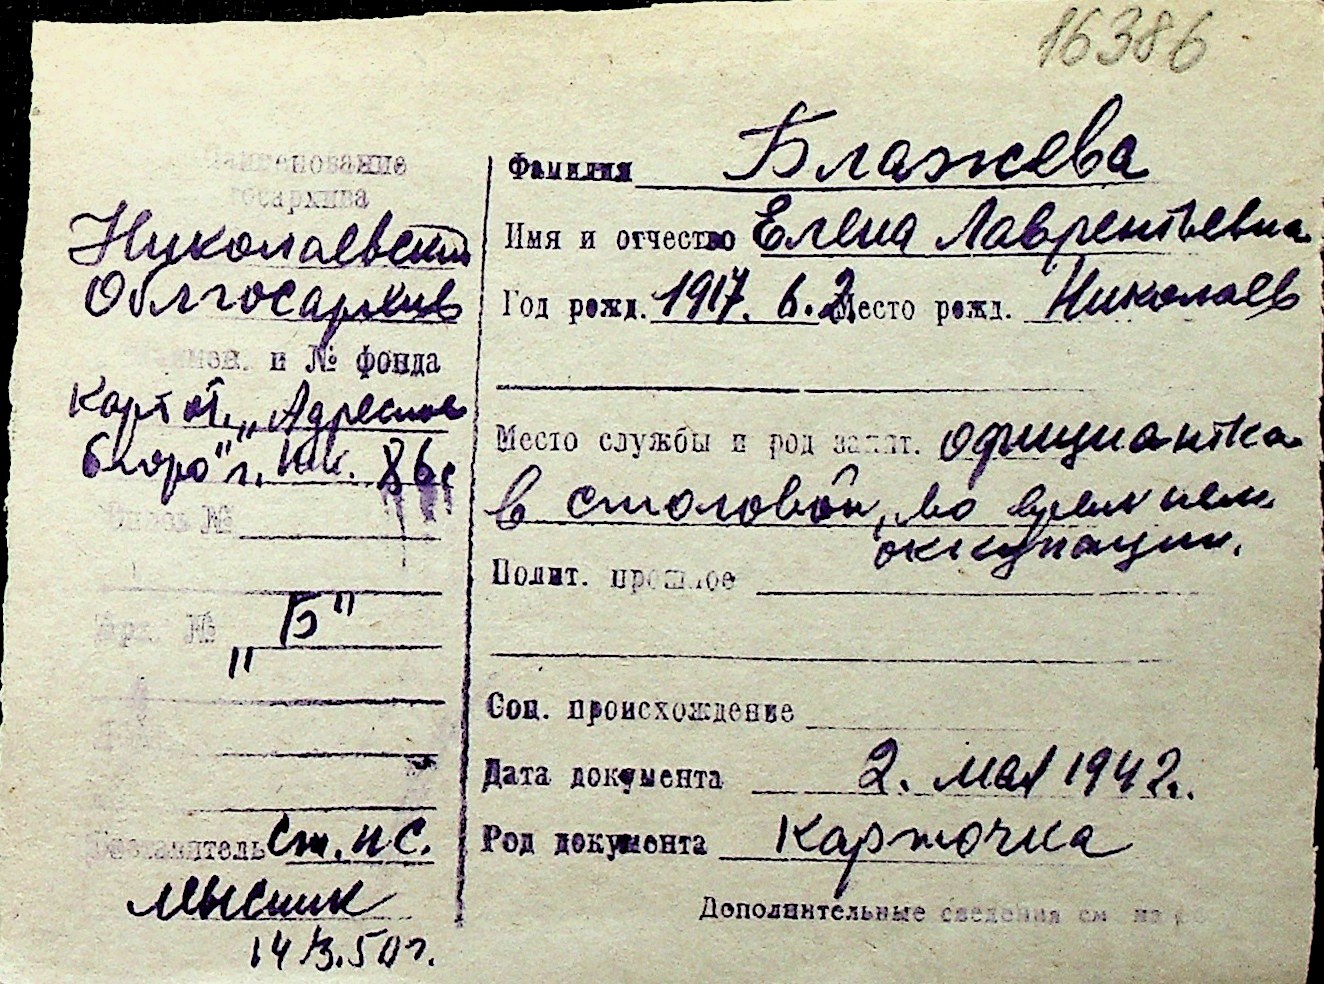 16386
Наименование
госархива
Николаевский
Облгосархив
Наимен. и № фонда
Картот. „Адресное
бюро" г. Ник.
Опись №
Арх. № „Б"
Составитель Ст. н с.
Мысник
14/3.50 г.
Фамилия Блажева
Имя и отчество Елена Лаврентьевна
Год рожд. 1917. 6. 2. Место рожд. Николаев
Место службы и род занят. официантка
в столовой, во время нем.
оккупации.
Полит. прошлое
Соц. происхождение
Дата документа 2. мая 1942г.
Род документа Карточка
Дополнительные сведения см на